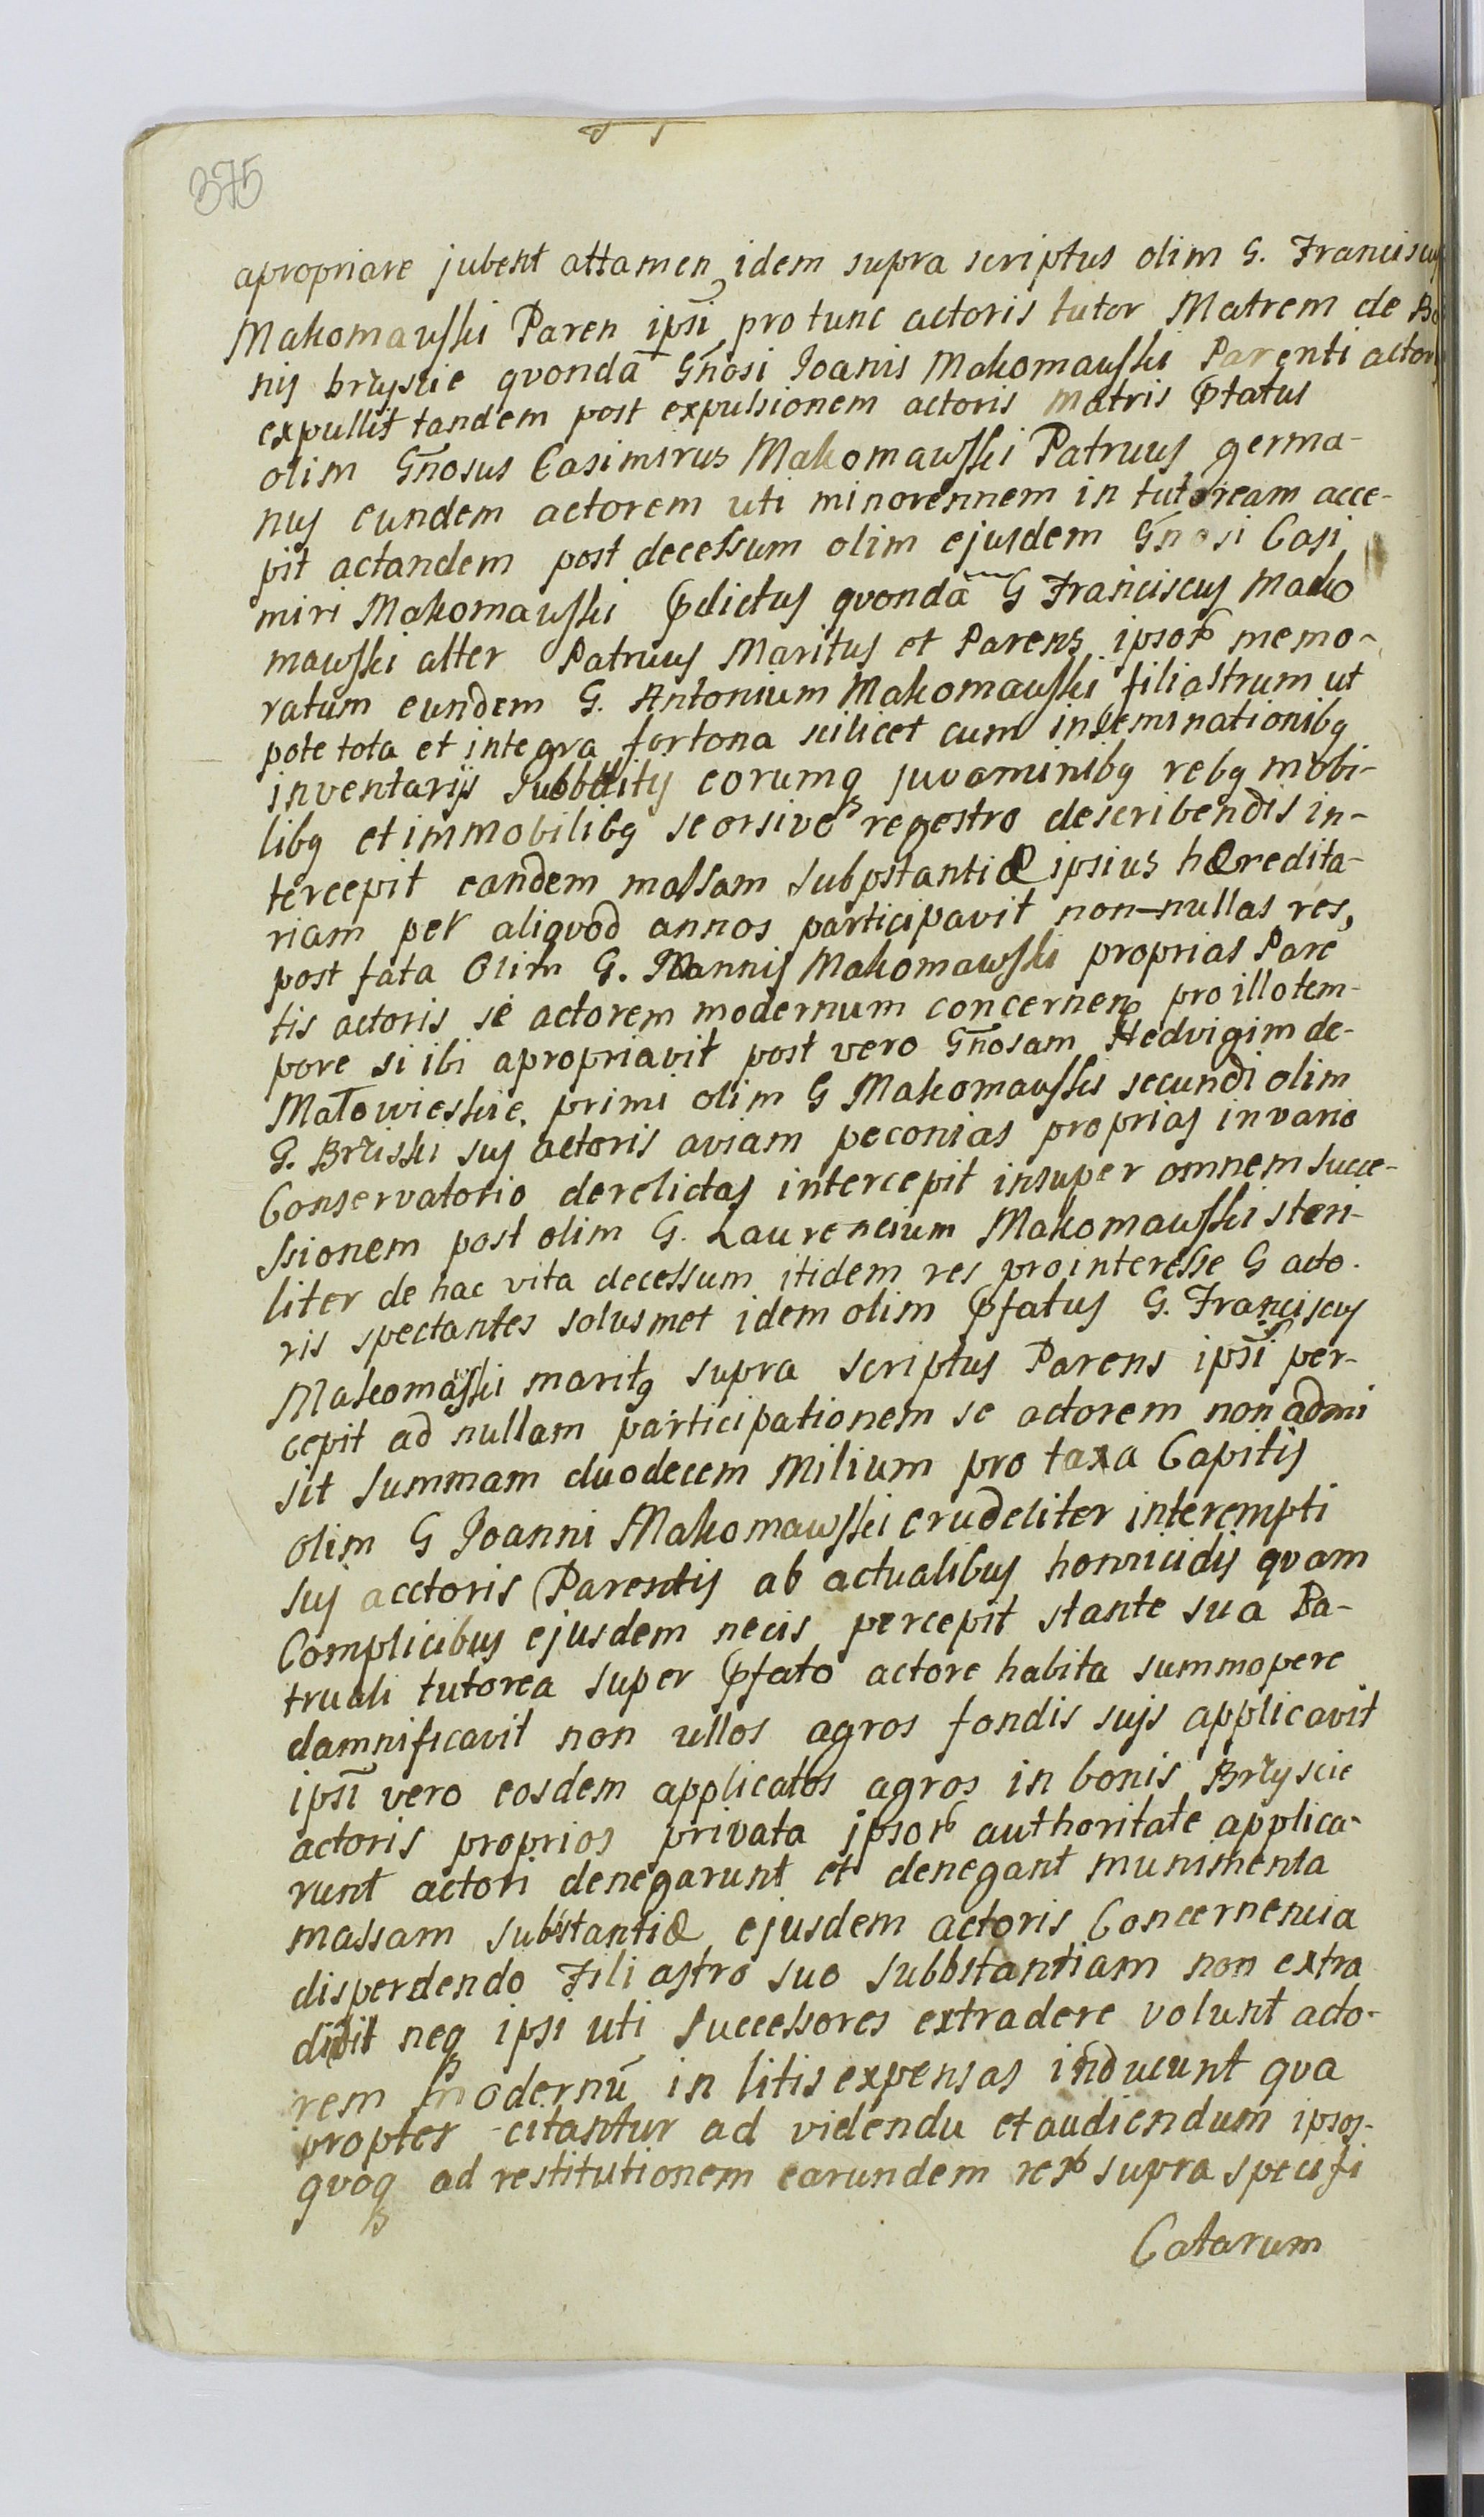 375
apropriare jubent attamen idem supra scriptus olim G. Franciscus
Makomawski Paren ipsī pro tunc actoris tutor Matrem de Bo
nis brzyscie qvondā Gn̄osi Joanis Makomawski Parenti actoris
expullit tandem post expulsionem actoris matris p̄fatus
olim Gn̄osus Casimirus Makomawski Patruus germa-
nus eundem actorem uti minorennem in tutoream acce-
pit actandem post decessum olim ejusdem Gn̄osi Casi
miri Makomawski p̄dictus qvondā G Franciscus Mako
mawski alter Patruus Maritus et Parens ipsoꝝ memo-
ratum eundem G. Antonium Makomawski filiastrum ut
pote tota et integra fortona scilicet cum inseminationibꝫ
inventarijs Subbditis eorumqꝫ juvaminibꝫ rebꝫ mobi-
libꝫ et immobilibꝫ seorsivo regestro describendis in-
tercepit eandem massam subpstantiæ ipsius hæredita-
riam per aliqvod annos participavit non-nullas res,
post fata Olim G. Joannis Makomawski proprias Parē
tis actoris se actorem modernum concernen pro illo tem-
pore si ibi apropriavit post vero Gn̄osam Hedvigim de-
Małowieskie, primi olim G Makomawski secundi olim
G. Brzisski sus actoris aviam peconias proprias in vario
Conservatorio derelictas intercepit insuper omnem succe-
ssionem post olim G. Laurencium Makomawski steri-
liter de hac vita decessum itidem res pro interesse G acto-
ris spectantes solusmet idem olim p̄fatus G. Franciscus
Makomawski maritꝫ supra scriptus Parens ipsī per-
cepit ad nullam participationem se actorem non admi
sit Summam duodecem Milium pro taxa Capitis
olim G Joanni Makomawski crudeliter interempti
sui acctoris Parentis ab actualibus homicidis qvam
Complicibus ejusdem necis percepit stante sua Pa-
truali tutorea super p̄fato actore habita summopere
damnificavit non ullos agros fondis sujs applicavit
ipsī vero eosdem applicatos agros in bonis Brzyscie
actoris proprios privata ipsoꝝ authoritate applica-
runt actori denegarunt et denegant munimenta
massam substantiæ ejusdem actoris Concernencia
disperdendo Fili astro suo subbstantiam non extra
didit neqꝫ ipsi uti Successores extradere volunt acto-
rem modernū in litis expensas inducunt qva
propter citantur ad videndu et audiendum ipsos-
qvoqꝫ ad restitutionem earundem reꝝ supra specifi
Catarum